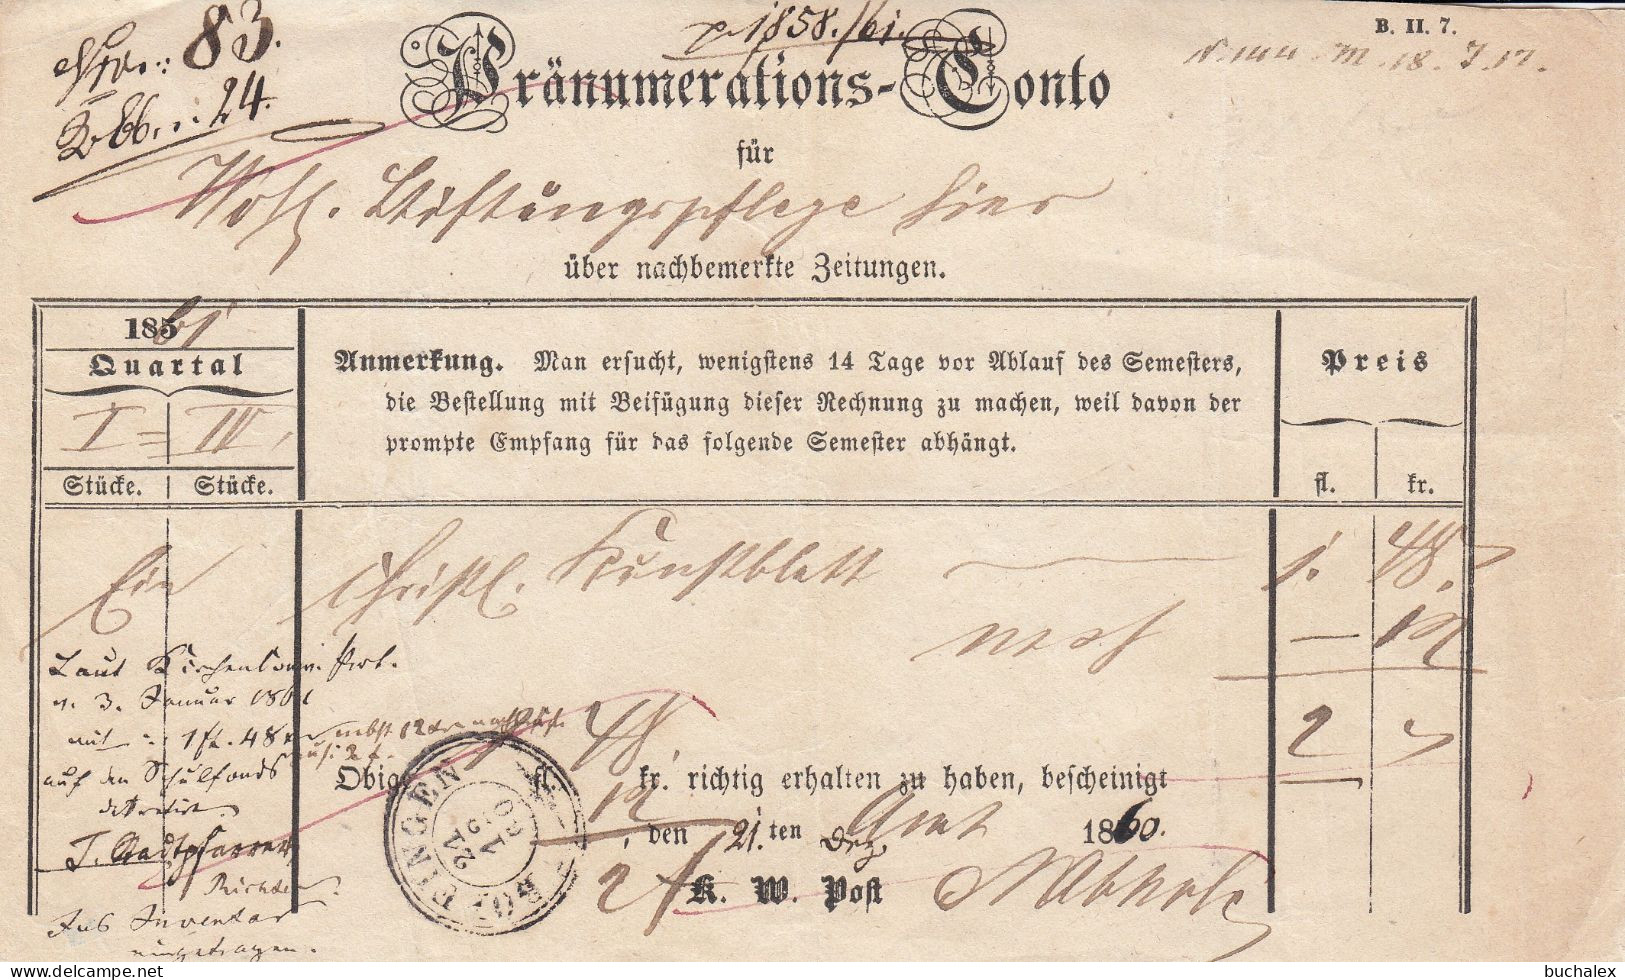 p. 1858./61.
B. II. 7.
83.
24.
Pränumerations-Conto
für
Wohl. Stiftungspflege hier
über nachbemerkte Zeitungen.
185 61
Quartal
I = IV.
Stücke. Stücke.
Anmerkung. Man ersucht, wenigstens 14 Tage vor Ablauf des Semesters,
die Bestellung mit Beifügung dieser Rechnung zu machen, weil davon der
prompte Empfang für das folgende Semester abhängt.
Preis
fl. kr.
Ein Christl. Kunstblatt 1. 48.
— 12
2
Laut Kirchenconv. Prot.
v. 3. Januar 1861
mit 1 fl. 48 kr nebst 12 kr
auf den Schulfonds
dekretirt.
T. Stadtpfarrer
Richter.
Ins Inventar
eingetragen.
48.
Obige fl. kr. richtig erhalten zu haben, bescheinigt
12
, den 21.ten Dez 1860.
2 f K. W. Post
BOPFINGEN